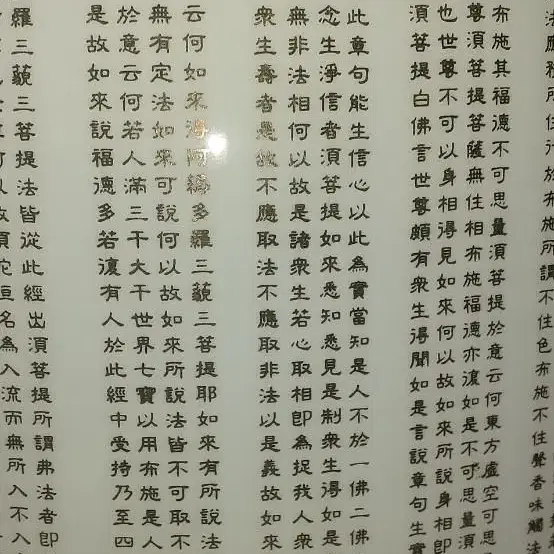 法應務所住行於布施所謂不住色布施不住聲香味觸法
布施其福德不可思量須菩提於意云何東方虛空可思
尊須菩提菩薩無住相布施福德亦復如是不可思量須
也世尊不可以身相得見如來何以故如來所說身相即
須菩提白佛言世尊頗有衆生得聞如是言說章句生實
此章句能生信心以此為實當知是人不於一佛二佛
念生淨信者須菩提如來悉知悉見是制衆生得如是
無非法相何以故是諸衆生若心取相即為捉我人衆
衆生壽者是故不應取法不應取非法以是義故如來
云何如來得阿耨多羅三藐三菩提耶如來有所說法
無有定法如來可說何以故如來所說法皆不可取不
於意云何若人滿三千大千世界七寶以用布施是人
是故如來說福德多若復有人於此經中受持乃至四
羅三藐三菩提法皆從此經出須菩提所謂弗法者即
何以故須陀洹名為入流而無所入不入